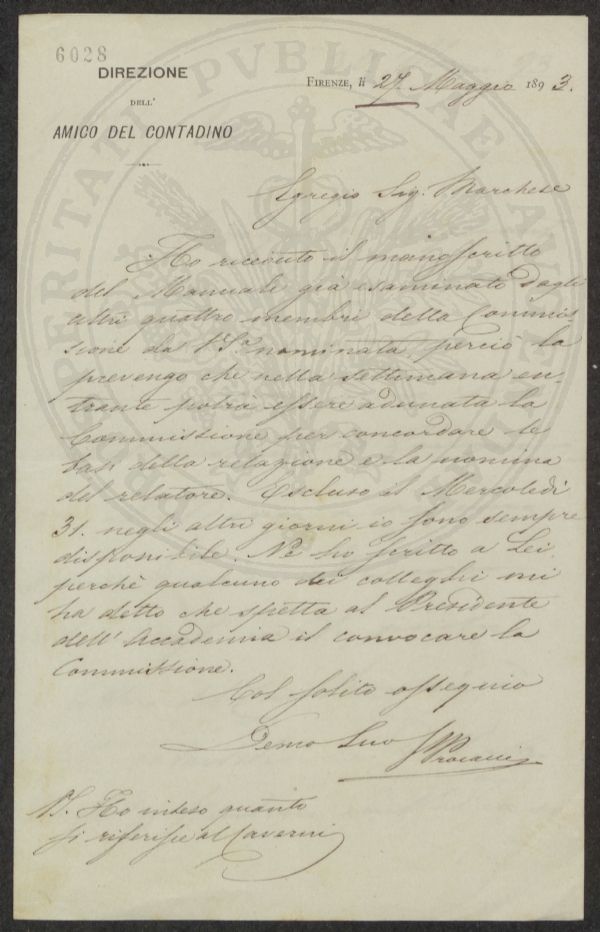 6028
DIREZIONE
DELL'
AMICO DEL CONTADINO
FIRENZE, li 27. Maggio 1893.
Egregio Sig. Marchese
Ho ricevuto il manoscritto
del Manuale già esaminato dagli
altri quattro membri della Commis
sione da V.S.a nominata, perciò la
prevengo che nella settimana en-
trante potrà essere adunata la
Commissione per concordare le
basi della relazione e la nomina
del relatore. Escluso il Mercoledì
31. negli altri giorni io sono sempre
disponibile. Ne ho scritto a Lei,
perchè qualcuno dei colleghi mi
ha detto che spetta al Presidente
dell'Accademia il convocare la
Commissione.
Col solito ossequio
Devmo Suo
PS. Ho inteso quanto
si riferisce al Caverni